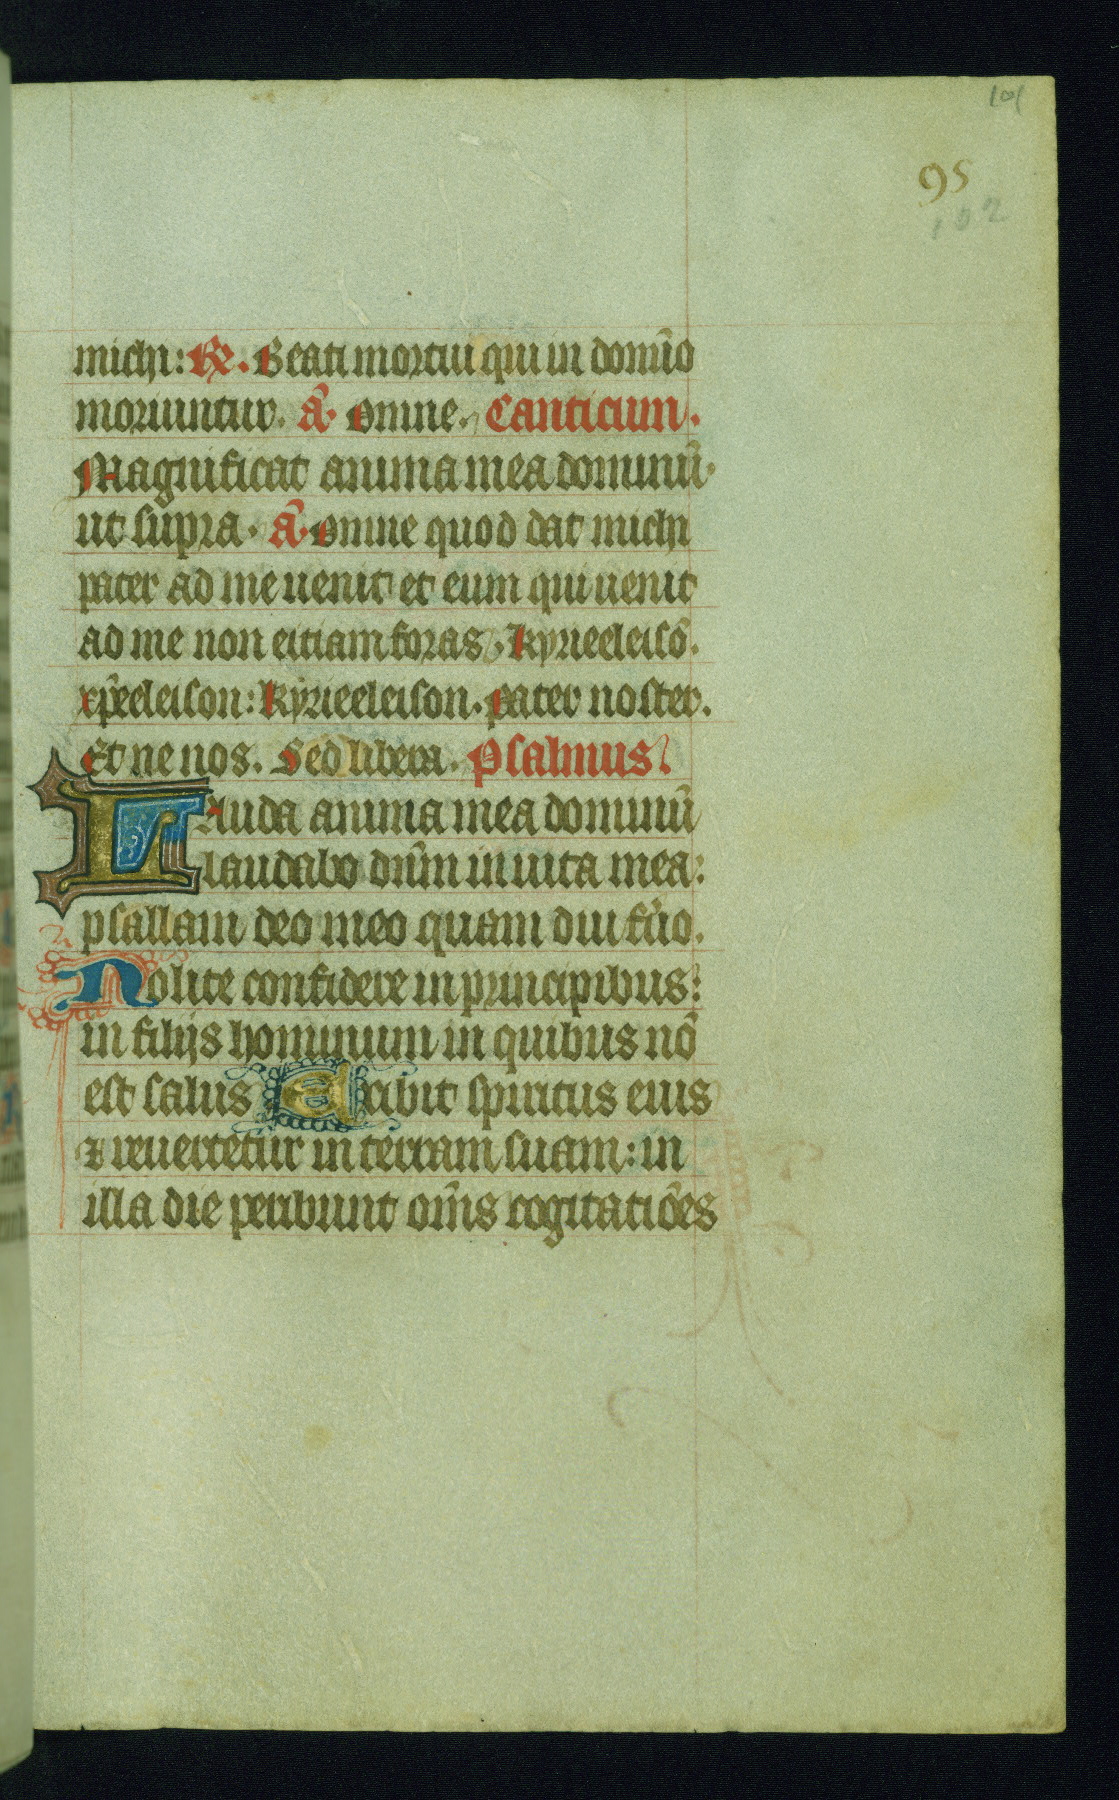 101
95
102
michi: R̃. Beati mortui qui in domĩo
moriuntur. ã. omne. Canticum.
Magnificat anima mea dominũ.
ut supra. ã. omne quod dat michi
pater ad me uenit et eum qui uenit
ad me non eitiam foras. Kyrieeleisõ.
xp̃eeleison: kyrieeleison. pater noster.
Et ne nos. Sed libera. Psalmus.
Lauda anima mea dominũ
laudabo dñm in uita mea:
psallam deo meo quam diu fũio.
Nolite confidere in principibus:
in filijs hominum in quibus nõ
est salus Exibit spiritus eius
⁊ reuertetur in terram suam: in
illa die peribunt om̃s cogitatiões